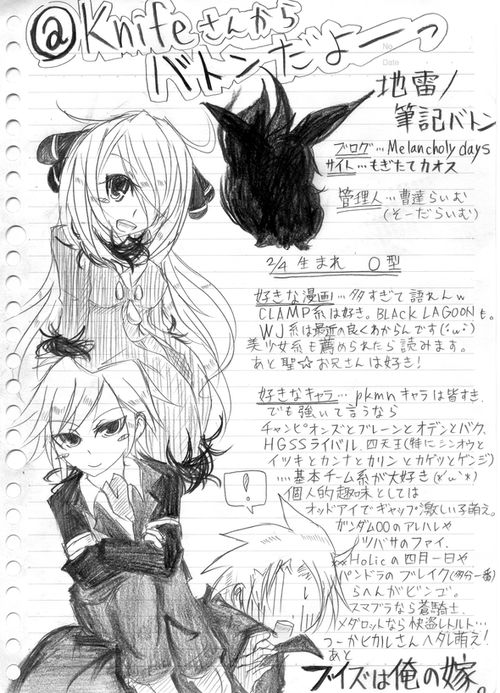 @Knifeさんから
バトンだよーっ
No.
Date
地雷/
筆記バトン
ブログ…Melancholy days
サイト…もぎたてカオス
管理人…曹達らいむ
(そーだらいむ)
2/4 生まれ O型
好きな漫画…多すぎて語れんw
CLAMP系は好き。BLACK LAGOONも。
WJ系は最近の良くわからんです(;´ω`;)
美少女系も薦められたら読みます。
あと聖☆お兄さんは好き!
好きなキャラ…pkmnキャラは皆すき、
でも強いて言うなら
チャンピオンズとブレーンとオデンとバク、
HGSSライバル、四天王(特にシンオウと
イツキとカンナとカリンとカゲツとゲンジ)
….基本チーム系が大好き(*´ω`*)
個人的趣味としては
オッドアイでギャップ激しい子萌え。
ガンダム00のアレハレや
ツバサのファイ、
xxxHolicの四月一日や
パンドラのブレイク(多分一番)
らへんがビンゴ。
スマブラなら蒼騎士、
メダロットなら快盗レトルト…
つーかヒカルさんヘタレ萌え!
あと
ブイズは俺の嫁。
!